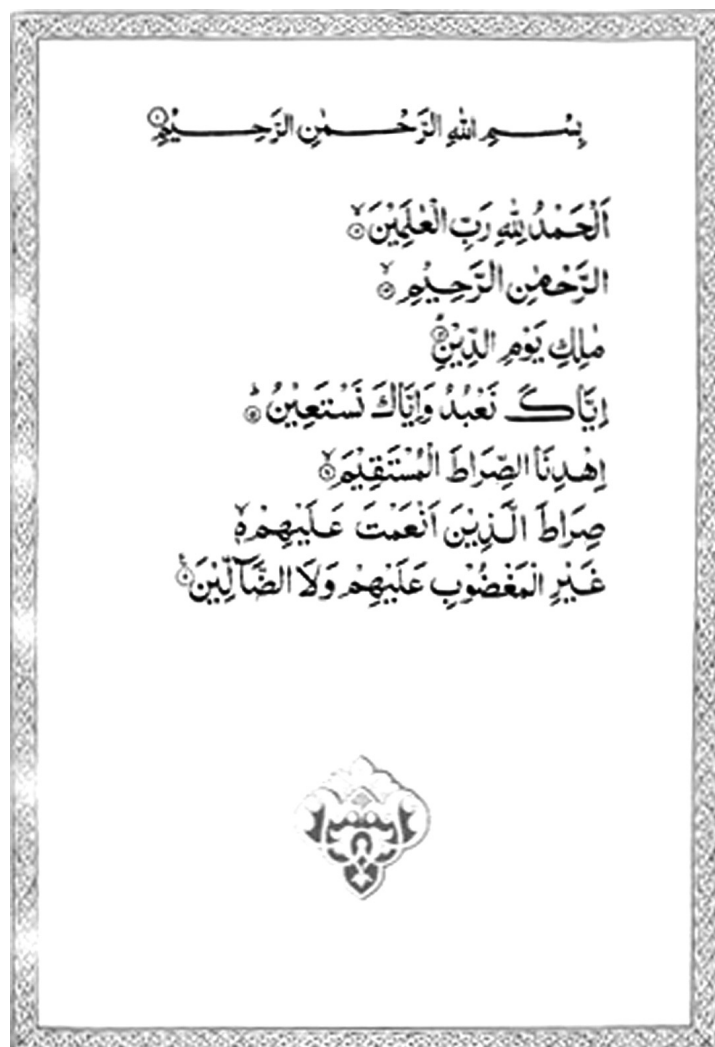 بِسْمِ اللهِ الرَّحْمٰنِ الرَّحِيْمِ ۝١
اَلْحَمْدُ لِلّٰهِ رَبِّ الْعٰلَمِيْنَ ۙ
الرَّحْمٰنِ الرَّحِيْمِ ۙ
مٰلِكِ يَوْمِ الدِّيْنِ ۗ
اِيَّاكَ نَعْبُدُ وَاِيَّاكَ نَسْتَعِيْنُ ۗ
اِهْدِنَا الصِّرَاطَ الْمُسْتَقِيْمَ ۙ
صِرَاطَ الَّذِيْنَ اَنْعَمْتَ عَلَيْهِمْ ۙ
غَيْرِ الْمَغْضُوْبِ عَلَيْهِمْ وَلَا الضَّآلِّيْنَ